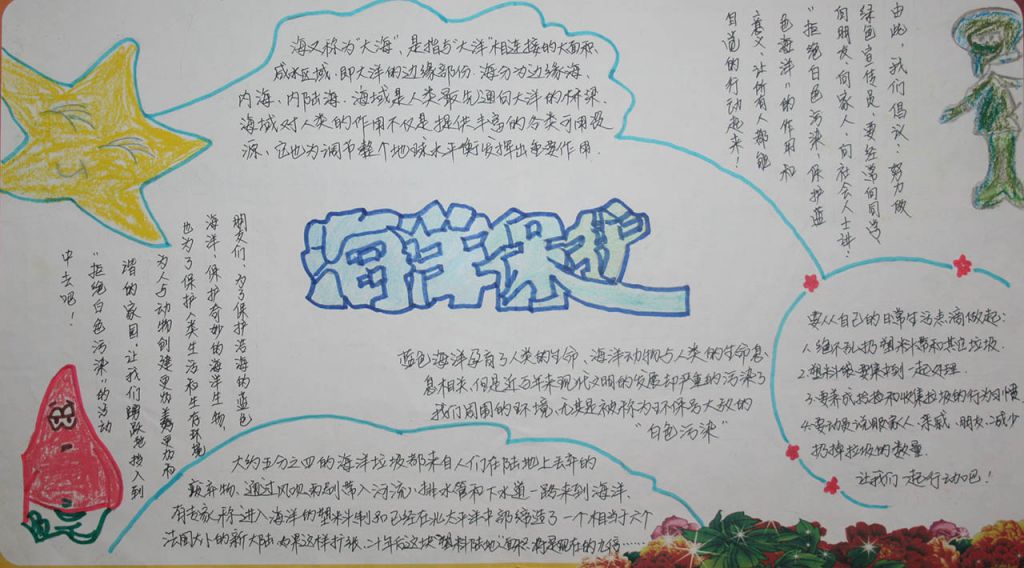 海又称为“大海”，是指与“大洋”相连接的大面积
咸水区域，即大洋的边缘部份.海分为边缘海、
内海、内陆海.海域是人类最先通向大洋的桥梁.
海域对人类的作用不仅是提供丰富的各类可用资
源，它也为调节整个地球水平衡发挥出重要作用.
由此，我们倡议：努力做
绿色宣传员，要经常向同学
向朋友、向家人、向社会人士讲：
“拒绝白色污染，保护蓝
色海洋”的作用和
意义，让所有人都能
自道的行动起来！
海洋保护
朋友们，为了保护沿海的蓝色
海洋，保护奇妙的海洋生物，
也为了保护人类生活和生存环境
为人与动物创建更为美好更为和
谐的家园，让我们踊跃地投入到
“拒绝白色污染”的活动
中去吧！
蓝色海洋孕育了人类的生命、海洋动物与人类的生命息
息相关.但是近百年来现代文明的发展却严重的污染了
我们周围的环境、尤其是被称为环保号大敌的
“白色污染”
要从自己的日常生活点滴做起：
1.绝不乱扔塑料袋和其它垃圾.
2.塑料袋要集中到一起处理.
3.要养成捡拾和收集垃圾的行为习惯
4.要动员说服家人、亲戚、朋友、减少
扔掉垃圾的数量.
让我们一起行动吧！
大约五分之四的海洋垃圾都来自人们在陆地上丢弃的
废弃物、通过风吹雨刮等入河流、排水管和下水道一路来到海洋.
有专家称进入海洋的塑料制品已经在北太平洋中部缔造了一个相当于六个
法国大小的新大陆.如果这样扩张.二十年后这块“塑料陆地”面积将是现在的九倍……